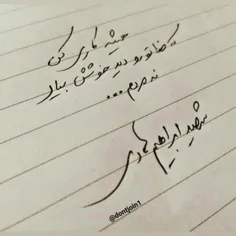 همیشه کاری کن
که خدا تو رو دید خوشش بیاد
نه مردم...
شهید ابراهیم هادی
@dontjoin1